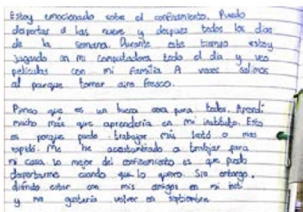 Estoy emocionado sobre el confinamiento. Puedo
despertar a las nueve y despues todos los dias
de la semana. Durante este tiempo estoy
jugando en mi computadora todo el dia y veo
peliculas con mi familia A veces salimos
al parque tomar aire fresco.
Pienso que es un buena para todos. Aprendi
mucho más que aprenderia en mi instituto. Esto
es porque puedo trabajar más o mas
rapido. Me he acostumbrado a trabajar para
mi casa. Lo mejor del confinamiento es que puedo
despertarme cuando que lo quiero. Sin embargo,
estar con mis amigos en mi insti
y me gustaria volver en septiembre